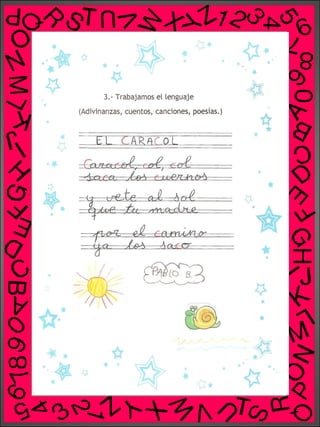 3.- Trabajamos el lenguaje
(Adivinanzas, cuentos, canciones, poesías.)
EL CARACOL
Caracol, col, col
saca los cuernos
y vete al sol
que tu madre
por el camino
ya los saco
PABLO B.